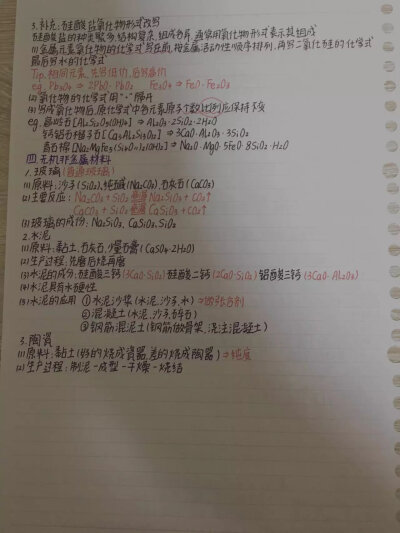 3.补充:硅酸盐氧化物形式改写
硅酸盐的种类繁多,结构复杂,组成各异,通常用氧化物形式表示其组成
(1)金属元素氧化物的化学式写在前,按金属活动性顺序排列,再写二氧化硅的化学式
最后写水的化学式
Tip.相同元素,先写低价,后写高价
eg. Pb₃O₄ ⇒ 2PbO·PbO₂ Fe₃O₄ ⇒ FeO·Fe₂O₃
(2)氧化物的化学式用"·"隔开
(3)写成氧化物后,原化学式中各元素原子个数比例应保持不变
eg. 高岭石[Al₂Si₂O₅(OH)₄] ⇒ Al₂O₃·2SiO₂·2H₂O
钙铝石榴子石[Ca₃Al₂Si₃O₁₂] ⇒ 3CaO·Al₂O₃·3SiO₂
⇒ Na₂O·MgO·5FeO·8SiO₂·H₂O
四.无机非金属材料
1.玻璃(普通玻璃)
(1)原料:沙子(SiO₂),纯碱(Na₂CO₃),石灰石(CaCO₃)
(2)主要反应:Na₂CO₃+SiO₂ 高温 Na₂SiO₃+CO₂↑
CaCO₃+SiO₂ 高温 CaSiO₃+CO₂↑
(3)玻璃的成份:Na₂SiO₃,CaSiO₃,SiO₂
2.水泥
(1)原料:黏土,石灰石,少量石膏(CaSO₄·2H₂O)
(2)生产过程:先磨后烧再磨
(3)水泥的成分:硅酸三钙(3CaO·SiO₂) 硅酸二钙(2CaO·SiO₂) 铝酸三钙(3CaO·Al₂O₃)
(4)水泥具有水硬性
(5)水泥的应用 ①水泥沙浆(水泥,沙子,水)
②混凝土(水泥,沙子,碎石)
③钢筋混凝土(钢筋做骨架,浇注混凝土)
3.陶瓷
(1)原料:黏土(好的烧成瓷器,差的烧成陶器) ⇒纯度
(2)生产过程:制泥-成型-干燥-烧结